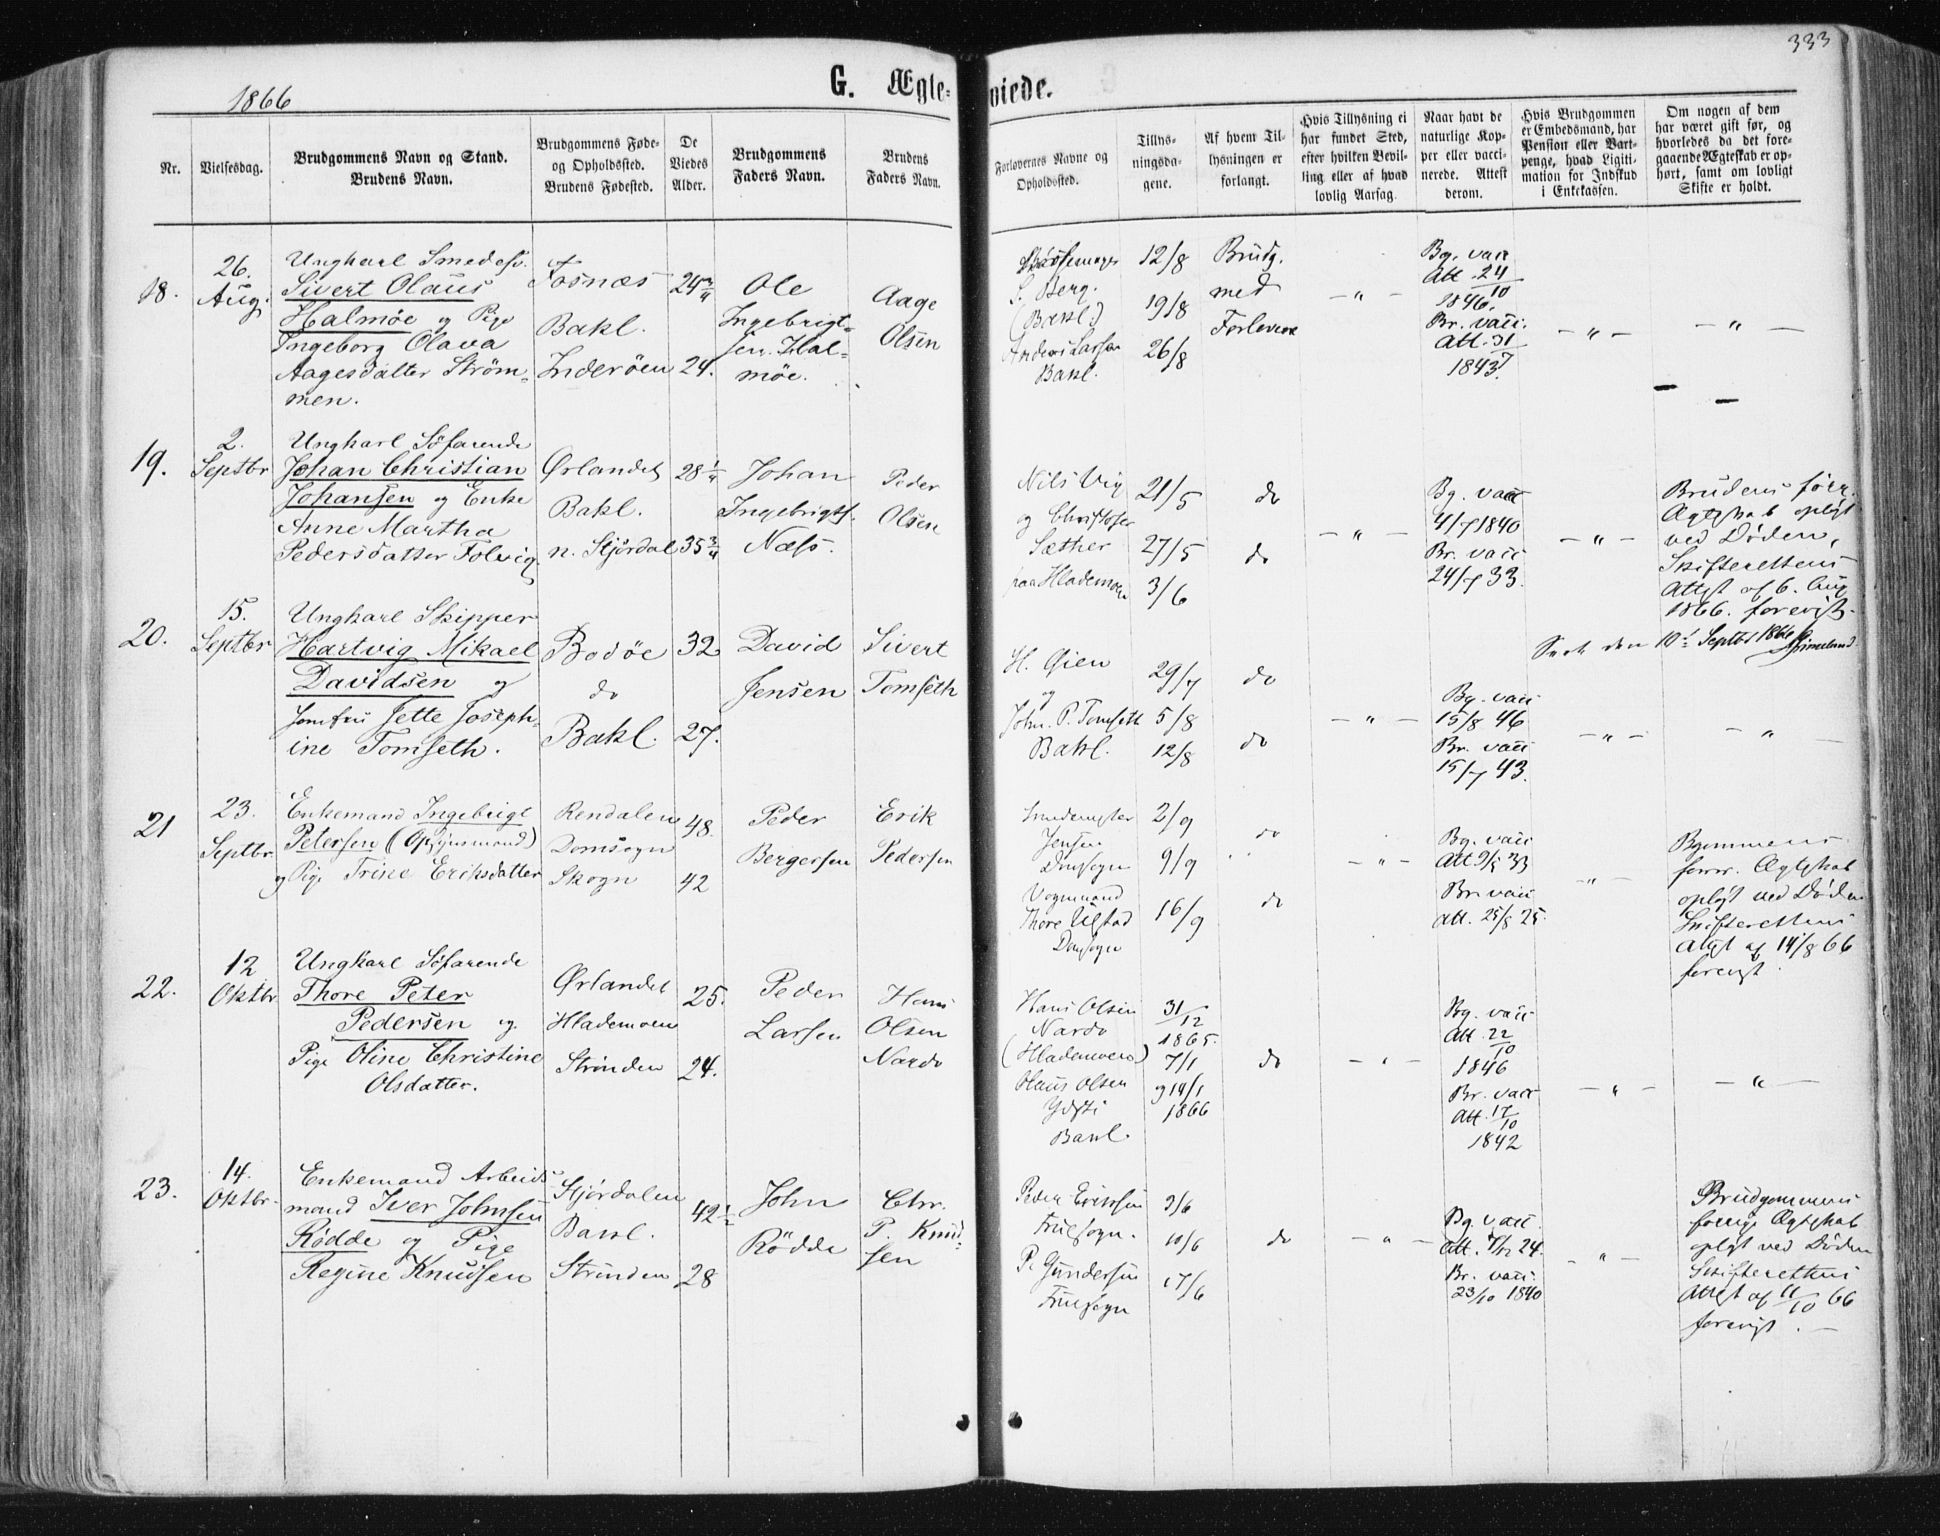 333
1866
G. Ægte-viede.
Nr.
Vielsesdag.
Brudgommens Navn og Stand.
Brudens Navn.
Brudgommens Føde-
og Opholdssted.
Brudens Fødested.
De
Viedes
Alder.
Brudgommens
Faders Navn.
Brudens
Faders Navn.
Forlovernes Navne og
Opholdssted.
Tillys-
ningsda-
gene.
Af hvem Til-
lysningen er
forlangt.
Hvis Tillysning ei
har fundet Sted,
efter hvilken Bevil-
ling eller af hvad
lovlig Aarsag.
Naar havt de
naturlige Kop-
per eller vacci-
nerede. Attest
derom.
Hvis Brudgommen
er Embedsmand, har
Pension eller Vart-
penge, hvad Ligiti-
mation for Indskud
i Enkekassen.
Om nogen af dem
har været gift før, og
hvorledes da det fore-
gaaende Ægteskab er op-
hørt, samt om lovligt
Skifte er holdt.
18.
26.
Aug.
Ungkarl Smedesv.
Sivert Olaus
Halmøe og Pige
Ingeborg Olava
Aagesdatter Strøm-
men.
Fosnæs
Bakl.
Inderøen
24 3/4
24.
Ole
Ingebrigt-
sen Hal-
møe.
Aage
Olsen
S. Berg.
(Bakl.)
Anders Larsen
Bakl.
12/8
19/8
26/8
Brudg.
med
Forlovere
— " —
Bg. vacc
Att. 24/10
1846.
Br. vacc.
Att. 31/7
1843.
— " —
— " —
19.
2.
Septbr
Ungkarl Søfarende
Johan Christian
Johansen og Enke
Anne Martha
Pedersdatter Folvig
Ørlandet
Bakl.
n. Stjørdal
28 1/4
35 3/4
Johan
Ingebrigts.
Næss.
Peder
Olsen
Nils Vig
og Christofer
Sæther
paa Hlademoen
21/5
27/5
3/6
do
do
— " —
Bg. vacc
4/7 1840
Br. vacc
24/7 33.
— " —
Brudens forr.
Ægteskab opløst
ved Døden,
Skifterettens
Attest af 6. Aug
1866. forevist.
20.
15.
Septbr
Ungkarl Skipper
Hartvig Mikael
Davidsen og
Jomfru Jette Joseph-
ine Tomseth.
Bodøe
do
Bakl.
32
27.
David
Jensen
Sivert
Tomseth
H. Gien
og
John. P. Tomseth
Bakl.
29/7
5/8
12/8
do
do
— " —
den 10de Septbr 1866
Bg. vacc
15/8 46
Br. vacc
15/7 43.
— " —
— " —
21
23.
Septbr
Enkemand Ingebrigt
Petersen (Opsynsmand)
og Pige Trine Eriksdatter
Rendalen
Domsogn
Skogn
48.
42
Peder
Bergersen
Erik
Pedersen
Jensen
Domsogn
Vognmand
Thore Ulstad
Domsogn
2/9
9/9
16/9
do
do
— " —
Bg. vacc
Att 9/5 33
Br. vacc
att. 25/8 25.
— " —
Bgommens
forr. Ægteskab
opløst ved Døden
Skifterettens
Attest af 14/8 66
forevist.
22.
12
Oktbr
Ungkarl Søfarende
Thore Peter
Pedersen og
Pige Oline Christine
Olsdatter.
Ørlandet
Hlademoen
Strinden
25.
24.
Peder
Larsen
Hans
Olsen
Nardo
Hans Olsen
Nardo
(Hlademoen)
Olaus Olsen
Ydsti
Bakl.
31/12
1865.
7/1
og 14/1
1866
do
— " —
Bg. vacc
Att. 22/10
1846
Br. vacc
Att. 17/10
1842
— " —
— " —
23.
14.
Oktbr.
Enkemand Arbeids
mand Iver Johnsen
Rødde og Pige
Regine Knudsen
Stjørdalen
Bakl.
Strinden
42 1/2
28
John
Rödde
Chr.
P. Knud-
sen
Peder Eriksen
Fruesogn.
P. Gundersen
Fruesogn
3/6
10/6
17/6
do
— " —
Bg. vacc.
Att. 7/12 24.
Br. vacc.
23/10 1840
— " —
Brudgommens
forrige Ægteskab
opløst ved Døden
Skifterettens
Attest af 11/10 66
forevist. —